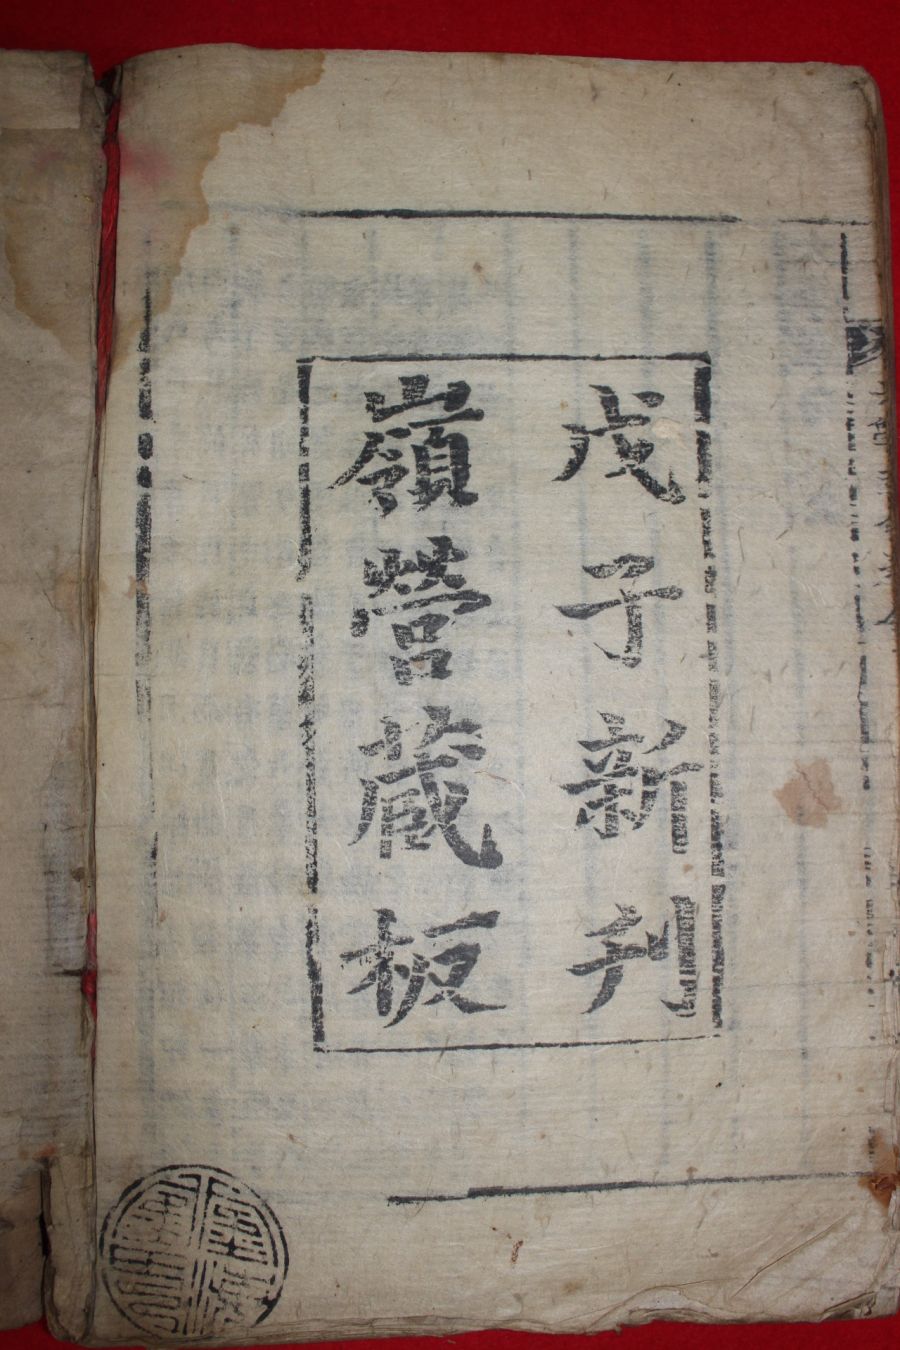 戊子新刋
嶺營藏板